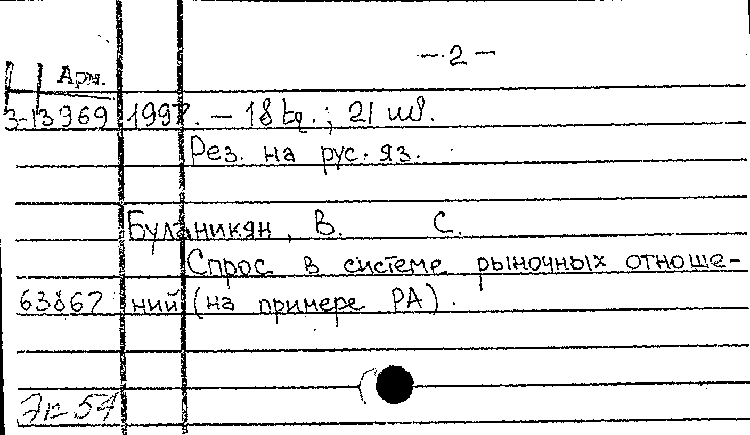 — 2 —
Арм.
3-13969 1997. — 18 էջ.; 21 սմ.
Рез. на рус. яз.
Буланикян, В. С.
Спрос в системе рыночных отноше-
63867 ний (на примере РА).
Эк 54